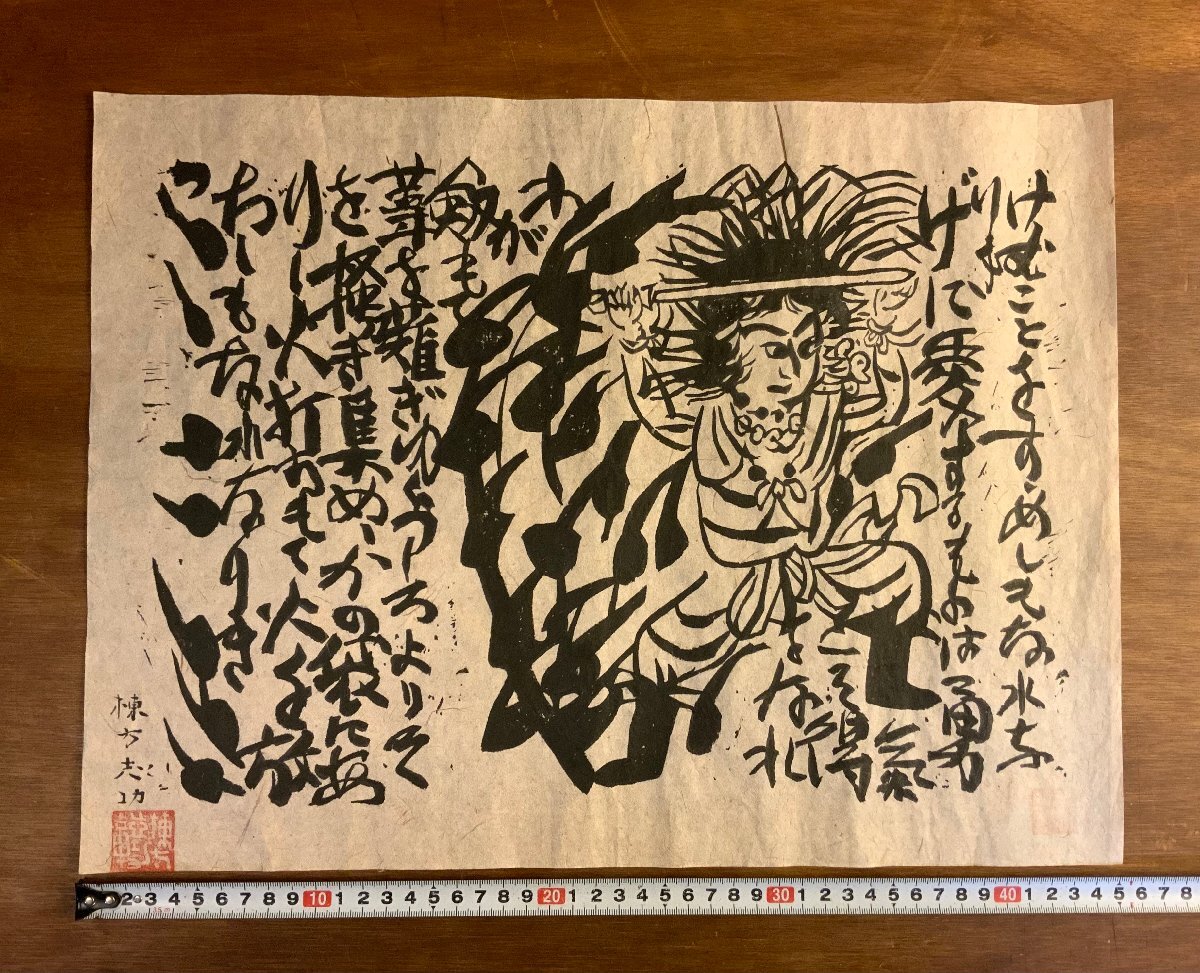 けむことをすゝめしもなれな
りき
げに愛するものは勇
氣
こそ
となれ
わが
剣もて
草を薙ぎゆくうしろよりそ
を掻き集め、かの袋にあ
りし火打もて火を放
ちしもなれなりき
棟方志功
1 2 3 4 5 6 7 8 9 10 1 2 3 4 5 6 7 8 9 20 1 2 3 4 5 6 7 8 9 30 1 2 3 4 5 6 7 8 9 40 1 2 3 4 5 6 7 8